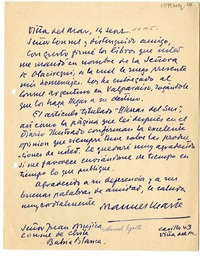 Viña del Mar, 14 sept.
Señor Consul y distinguido amigo:
Con gusto firmé los libros que usted
me mandó en nombre de la Señora
de Olaciregui, a la cual le ruego presente
mis homenajes. Los he entregado al
Consul argentino en Valparaíso, rogándole
que los haga llegar a su destino.
El artículo titulado "Blanca del Sur",
así como la página que leí después en el
Diario Ilustrado confirman la excelente
opinión que siempre tuve sobre las produc-
ciones de usted. Le quedaré muy agradecido
si me favorece enviándome de tiempo en
tiempo lo que publique.
Agradecido a su deferencia y a sus
buenas palabras de amistad, le saluda
muy cordialmente Manuel Ugarte
Señor Juan Mujica
Consul de Chile
Bahía Blanca.
Manuel Ugarte
casilla 43
Viña del M.